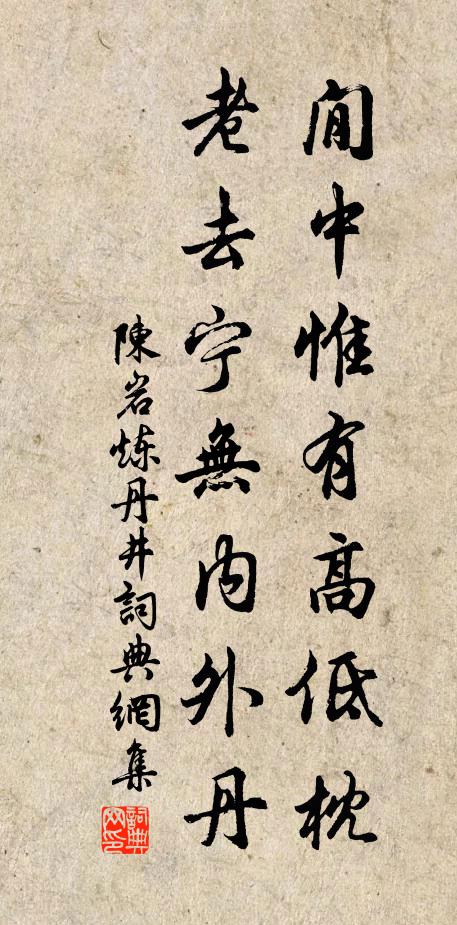 閒中惟有高低枕
老去宁無内外丹
陳岩炼丹井詞典網集
詞典网印